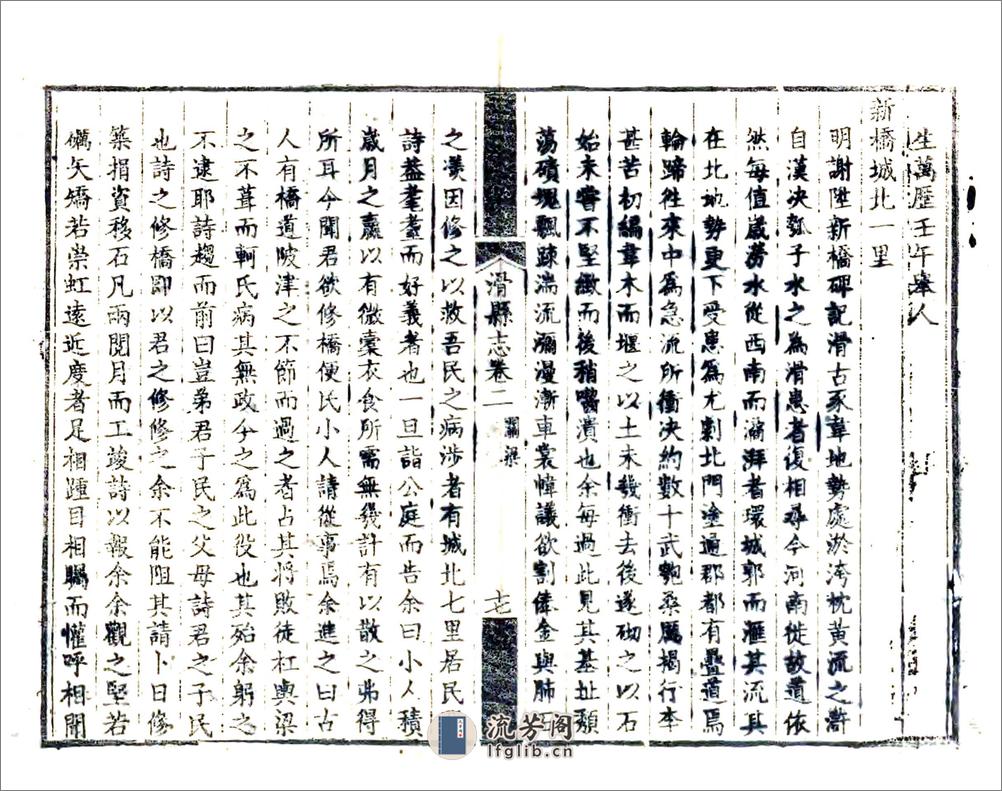 生萬歷壬午舉人
新橋城北一里
明謝陞新橋碑記滑古豕韋地勢處淤洿枕黃流之滸
自漢決瓠子水之為滑患者復相尋今河南徙故道依
然每值歲澇水從西南而滂湃者環城郭而滙其流其
在北地勢更下受患為尤劇北門塗通郡都有疊道焉
輪蹄徃來中為急流所衝決約數十武匏桑厲揭行李
甚苦初編葦木而堰之以土未幾衝去後遂砌之以石
始未嘗不堅緻而後稍嚙潰也余每過此見其基址頹
蕩礦塊飄踈湍流瀰漫漸車裳幃議欲割俸金與肺
滑縣志卷二 關梁 十七
之羡因修之以救吾民之病涉者有城北七里居民
詩葢耄耋而好義者也一旦詣公庭而告余曰小人積
歲月之羸以有微橐衣食所需無幾計有以散之弗得
所耳今聞君欲修橋便民小人請從事焉余進之曰古
人有橋道陂津之不節而過之者占其將敗徒杠輿梁
之不葺而軻氏病其無政今之為此役也其殆余躬之
不逮耶詩趨而前曰豈弟君子民之父母詩君之子民
也詩之修橋即以君之修修之余不能阻其請卜日修
築捐資移石凡兩閱月而工竣詩以報余余觀之堅若
礪矢矯若崇虹遠近度者足相踵目相矚而懽呼相聞
流芳阁
lfglib.cn